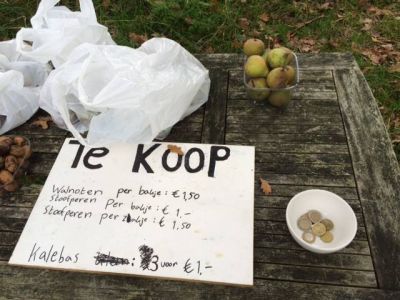 Te KOOP
Walnoten per bakje: € 1,50
Stoofperen Per bakje: € 1.-
Stoofperen per zakje: € 1.50
Kalebas : 3 voor € 1.-